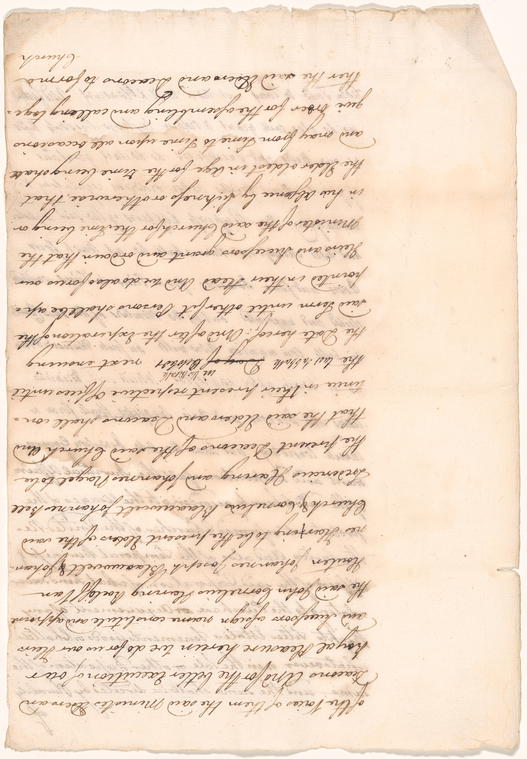 of the Voices of them the said Minister Elders and
Deacons And for the better Execution of our
Royal Pleasure herein we do for us our Heirs
and Successors assign name constitute and appoint
the said John Cornelius Haring Roeloff Van
Houten Johannes Joseph Blauwvelt & Johan-
nes Haring to be the present Elders of the said
Church & Cornelius Blauwvelt Johannes Bell
Frederick Haring and Johannes Nagel to be
the present Deacons of the said Church And
that the said Elders and Deacons shall con=
tinue in their present respective Offices until
the last Day of October next ensuing
the Date hereof: And after the Expiration of the
said Term until other fit Persons shall be ap-
pointed in their Stead And we do also for us our
Heirs and Successors grant and ordain that the
Minister of the said Church for the time being or
in his Absence by Sickness or otherwise that
the Elder oldest in Age for the time being shall
and may from Time to Time upon all occasions
give Order for the assembling and calling toge=
ther the said Elders and Deacons to form a
Church